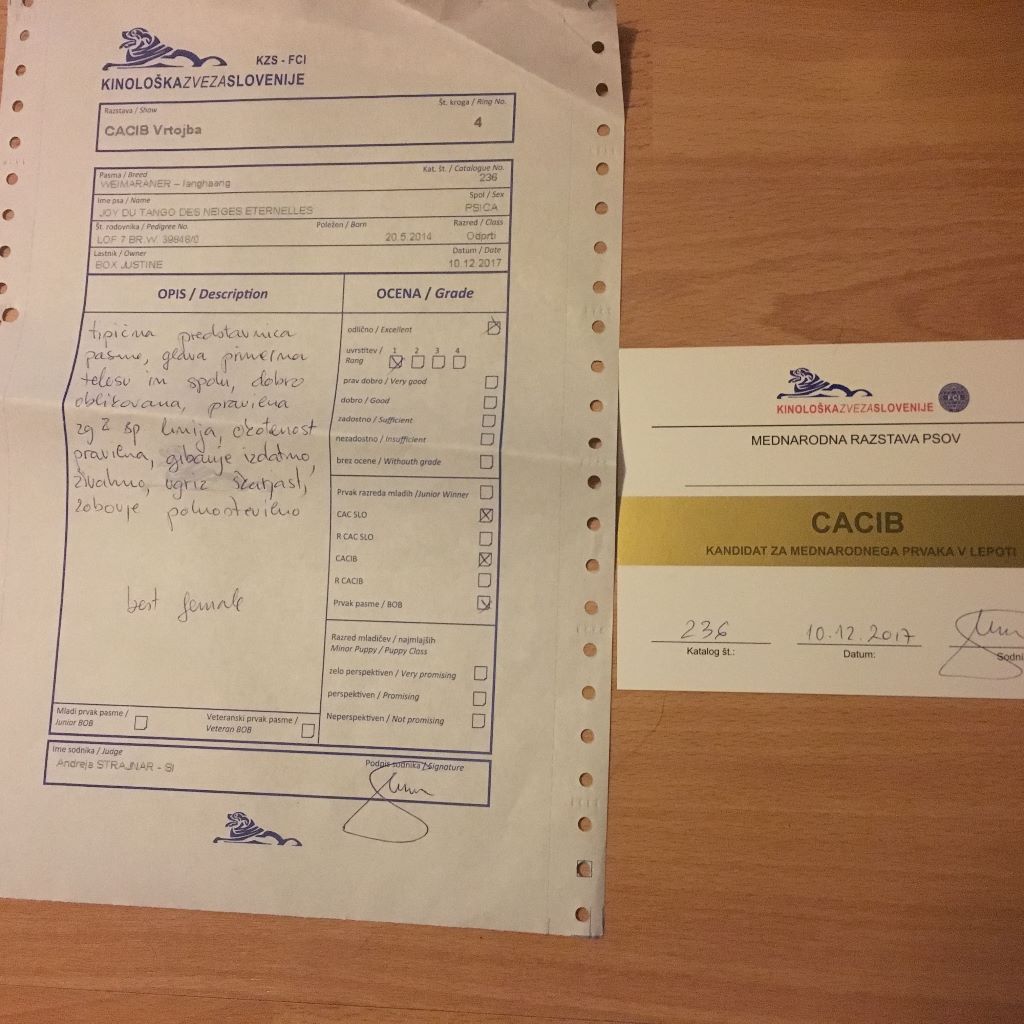 KZS - FCI
KINOLOŠKAZVEZASLOVENIJE
Razstava / Show
Št. kroga / Ring No.
CACIB Vrtojba
4
Pasma / Breed
Kat. št. / Catalogue No.
WEIMARANER – langhaang
236
Ime psa / Name
Spol / Sex
JOY DU TANGO DES NEIGES ETERNELLES
PSICA
Št. rodovnika / Pedigree No.
Poležen / Born
Razred / Class
LOF 7 BR W. 39848/0
20.5.2014
Odprti
Lastnik / Owner
Datum / Date
BOX JUSTINE
10.12.2017
OPIS / Description
OCENA / Grade
tipična predstavnica
pasme, glava primerna
telesu in spolu, dobro
oblikovana, pravilna
zg & sp linija, okotenost
pravilna, gibanje izdatno,
živahno, ugriz škarjast,
zobovje polnoštevilno
best female
odlično / Excellent
uvrstitev / Rang
1 2 3 4
prav dobro / Very good
dobro / Good
zadostno / Sufficient
nezadostno / Insufficient
brez ocene / Withouth grade
Prvak razreda mladih /Junior Winner
CAC SLO
R CAC SLO
CACIB
R CACIB
Prvak pasme / BOB
Razred mladičev / najmlajših
Minor Puppy / Puppy Class
zelo perspektiven / Very promising
perspektiven / Promising
Neperspektiven / Not promising
Mladi prvak pasme /
Junior BOB
Veteranski prvak pasme /
Veteran BOB
Ime sodnika / Judge
Podpis sodnika / Signature
Andreja STRAJNAR - SI
KINOLOŠKAZVEZASLOVENIJE
FCI
MEDNARODNA RAZSTAVA PSOV
CACIB
KANDIDAT ZA MEDNARODNEGA PRVAKA V LEPOTI
236
10.12.2017
Katalog št.:
Datum:
Sodni